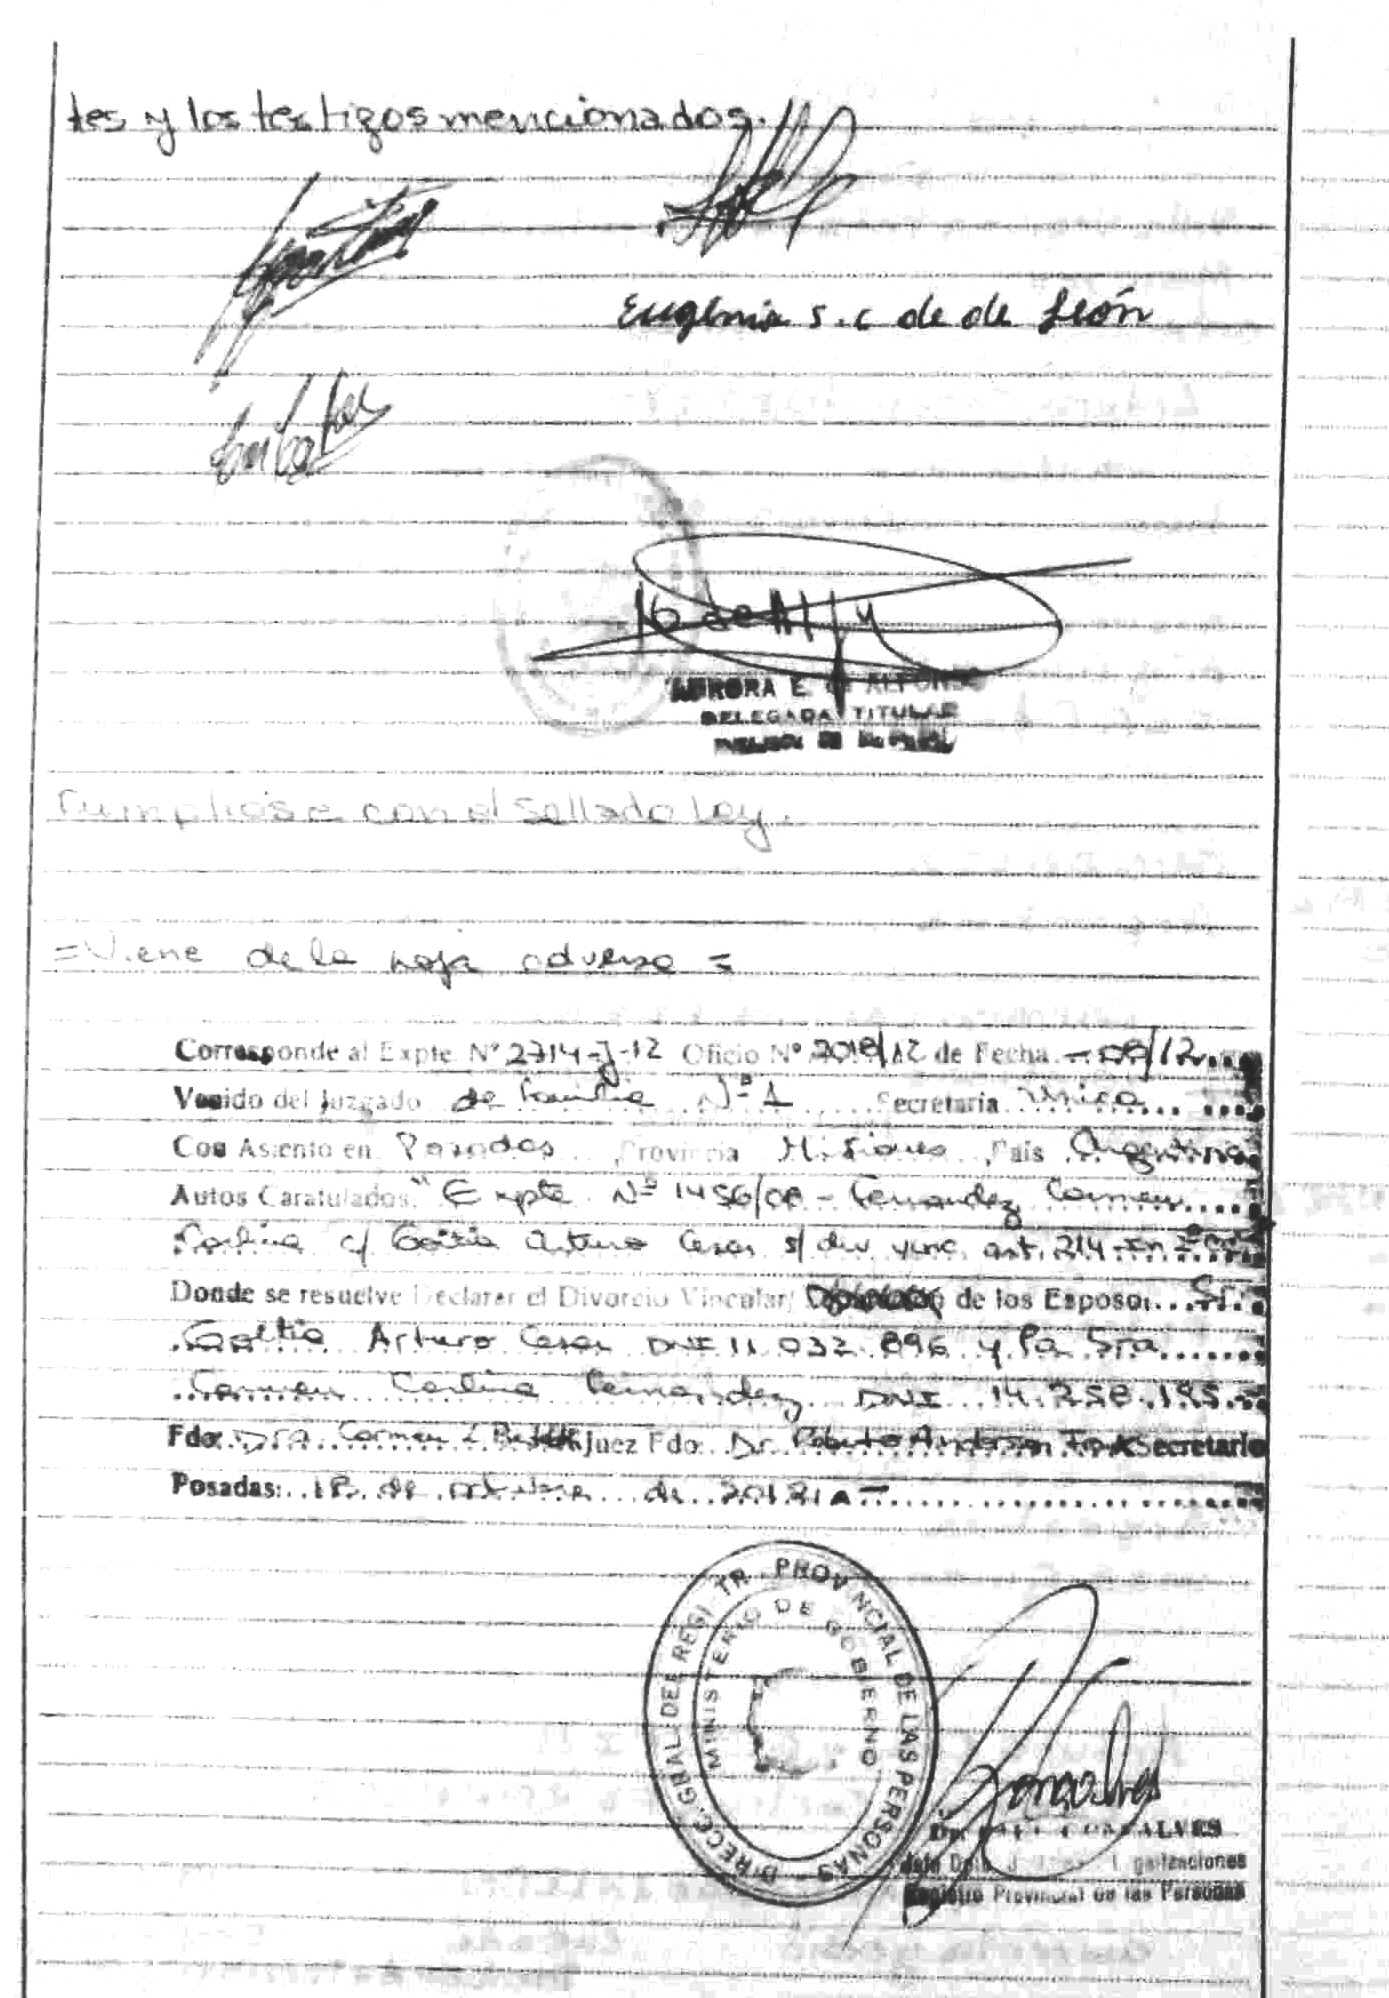 tes y los testigos mencionados.
Eugenia s.c de de León
AURORA E. de ALFONSO
DELEGADA TITULAR
Cumpliose con el Sellado Ley.
=Viene de la hoja adversa=
Corresponde al Expte Nº 2714-J-12 Oficio Nº 2018/12 de Fecha -09/12
Venido del Juzgado de Familia Nº 1 Secretaria Unica
Con Asiento en Posadas Provincia Misiones Pais Argentina
Autos Caratulados "Expte Nº 1456/08 - Fernandez Carmen
c/ Goitia Arturo Cesar s/ div vinc. art. 214
Donde se resuelve Declarar el Divorcio Vincular de los Esposos Sr.
Goitia Arturo Cesar DNI 11.032.896 y la Sra
Carmen Fernandez DNI 14.258.195
Fdo: Dra Carmen Juez Fdo. Dr. Roberto Anderson Secretario
Posadas: 18 de octubre de 2012
DIRECC. GRAL. DEL REGISTR. PROVINCIAL DE LAS PERSONAS
MINISTERIO DE GOBIERNO
GONSALVES
Registro Provincial de las Personas